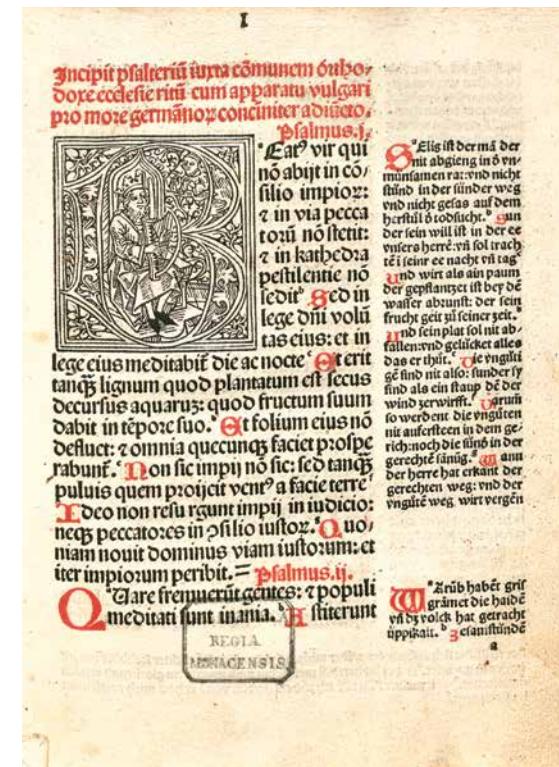 I
Incipit psalteriū iuxta cōmunem ortho-
doxe ecclesie ritū cum apparatu vulgari
pro more germānoꝝ concīniter adiūcto.
Psalmus.j.
Eatꝰ vir qui
nō abijt in cō/
silio impioꝝ:
⁊ in via pecca
torū nō stetit:
⁊ in kathedra
pestilentie nō
sedit b Sed in
lege dn̄i volū
tas eius: et in
lege eius meditabit̄ die ac nocte c Et erit
tanqꝫ lignum quod plantatum est secus
decursus aquaruꝫ: quod fructum suum
dabit in tēpore suo. Et folium eius nō
defluet: ⁊ omnia quecunqꝫ faciet prospe
rabunt̄. Non sic impij nō sic: sed tanqꝫ
puluis quem proijcit ventꝰ a facie terre
Ideo non resu rgunt impij in iudicio:
neqꝫ peccatores in ꝯsilio iustoꝝ. Quo/
niam nouit dominus viam iustorum: et
iter impiorum peribit. = Psalmus.ij.
Quare fremuerūt gentes: ⁊ populi
meditati sunt inania. Astiterunt
Selig ist der mā der
nit abgieng in
munsamen rat: vnd nicht
stūnd in der sūnder weg
vnd nicht gesas auf dem
herstūl todsucht. b Sun
der sein will ist in der ee
vnsers herrē: vn̄ sol trach
tē i seinr ee nacht vn̄ tag
Und wirt als ain paum
der gepflantzet ist bey dē
wasser abrunst: der sein
frucht geit zū seiner zeit.
Und sein plat sol nit ab-
fallen: vnd gelücket alles
das er thūt. Die vngūti
gē sind nit also: sunder sy
sind als ein staup dē der
wind zerwirfft. Darum
so werdent die vngūten
nit aufersteen in dem ge-
rich: noch die sūnd in der
gerechtē samūg. Wann
der herre hat erkant der
gerechten weg: vnd der
vngūtē weg wirt vergēn
Warūb habēt gris
grāmet die haidē
vn̄ dꝫ volck hat getracht
üppikait. b Zesamstūndē
a
REGIA
MONACENSIS